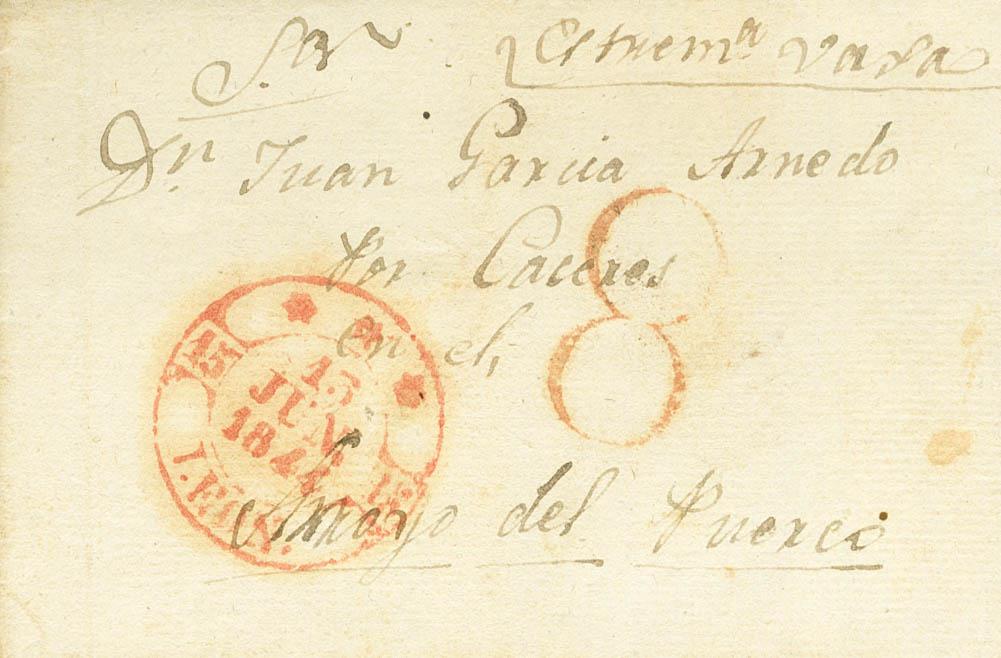 Sor. Estremª vaxa
Dn. Juan Garcia Arnedo
Por Caceres
en el,
Arroyo del Puerco
8
15
JUN.
LEON.